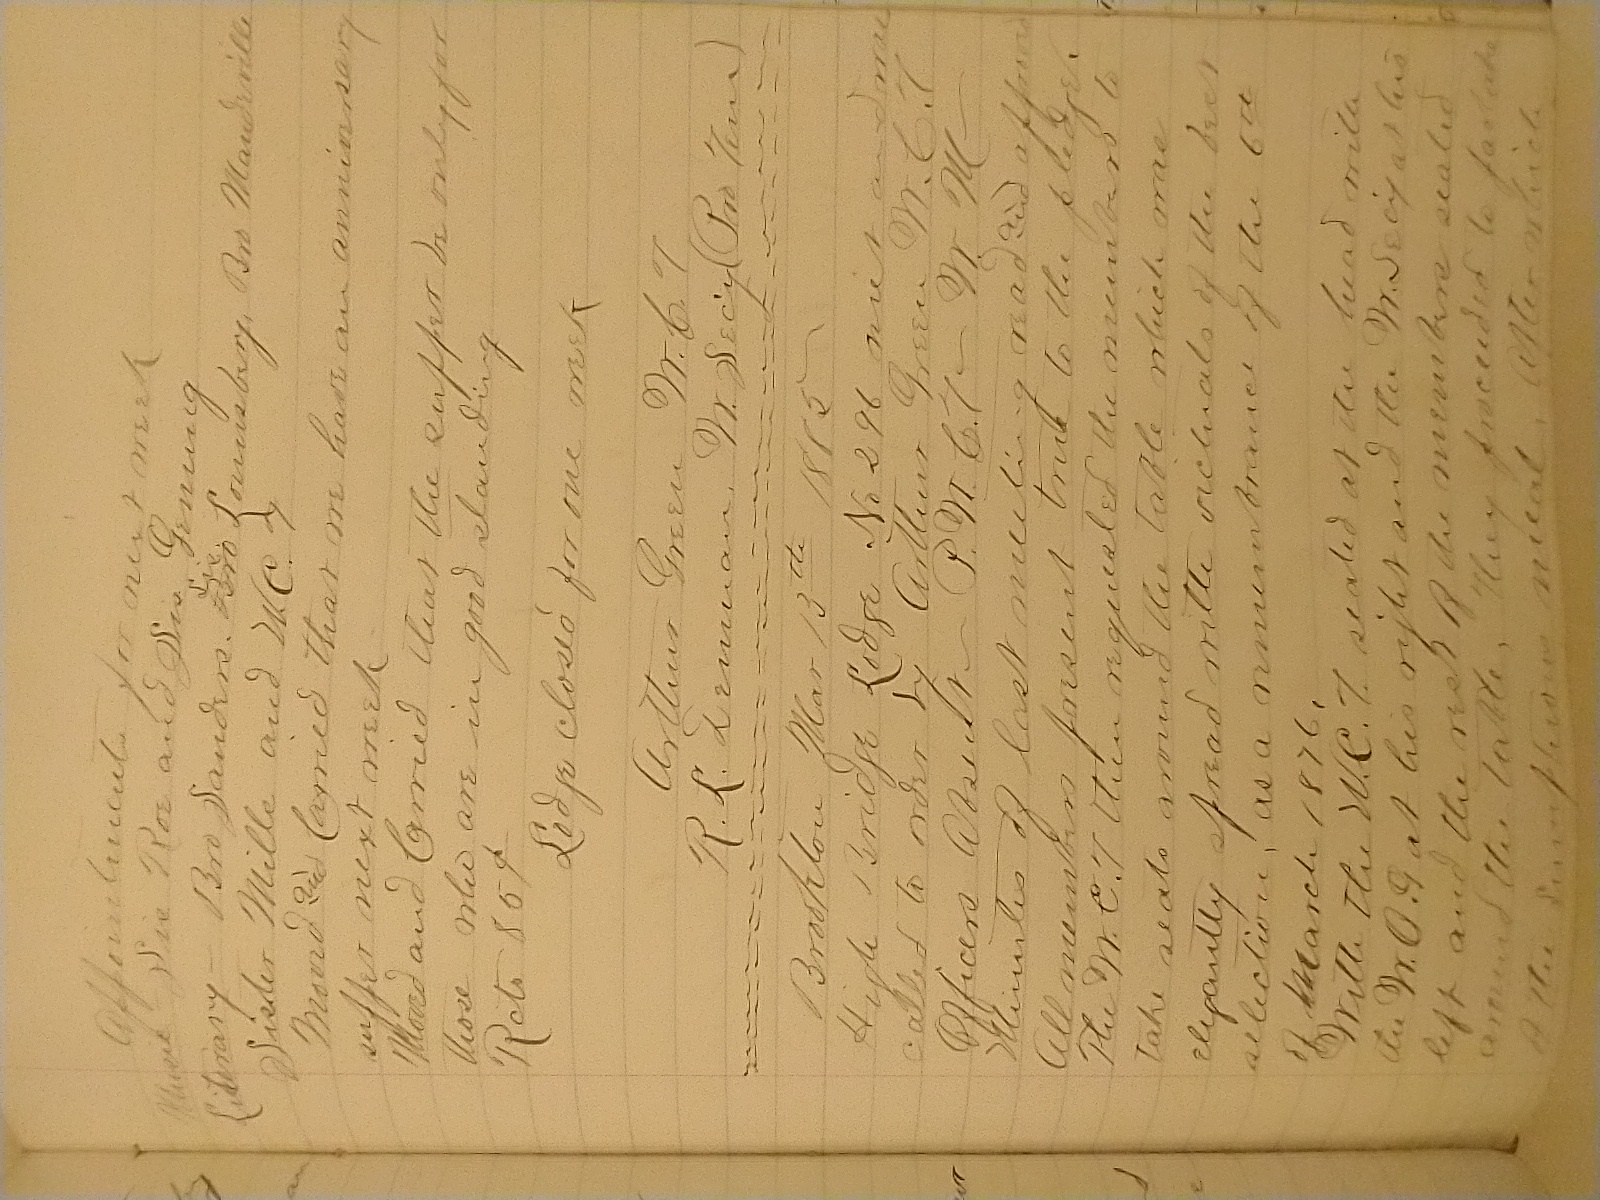 Appointments for next week
Music Sis Roe and Sis Genung
Literary - Bro Sanders. Sis Lounsbury, Bro Mandeville
Sister Mille and W.C.T
Moved 2ed Carried that we have an anniversary
supper next week
Moved and Carried that the supper be only for
those who are in good standing
Rcts 86¢
Lodge closed for one week
Arthur Green W.C.T
R. L. Lennan, W. Secy (Pro tem)
Brooklow Mar 13th 1885
High Bridge Lodge No 296 met and was
called to order by Arthur Green W.C.T
Officers Absent - P.W.C.T - W. M -
Minutes of last meeting read 2ed approved
All members present true to the pledge.
The W.C.T then requested the members to
take seats around the table which was
elegantly spread with victuals of the best
selection, as a remembrance of the 6th
of March 1876.
With the W.C.T. seated at the head with
the W.O.G at his right and the W. Secy at his
left and the rest of the members seated
around the table, they proceeded to partake
of the sumptuous meal, After which